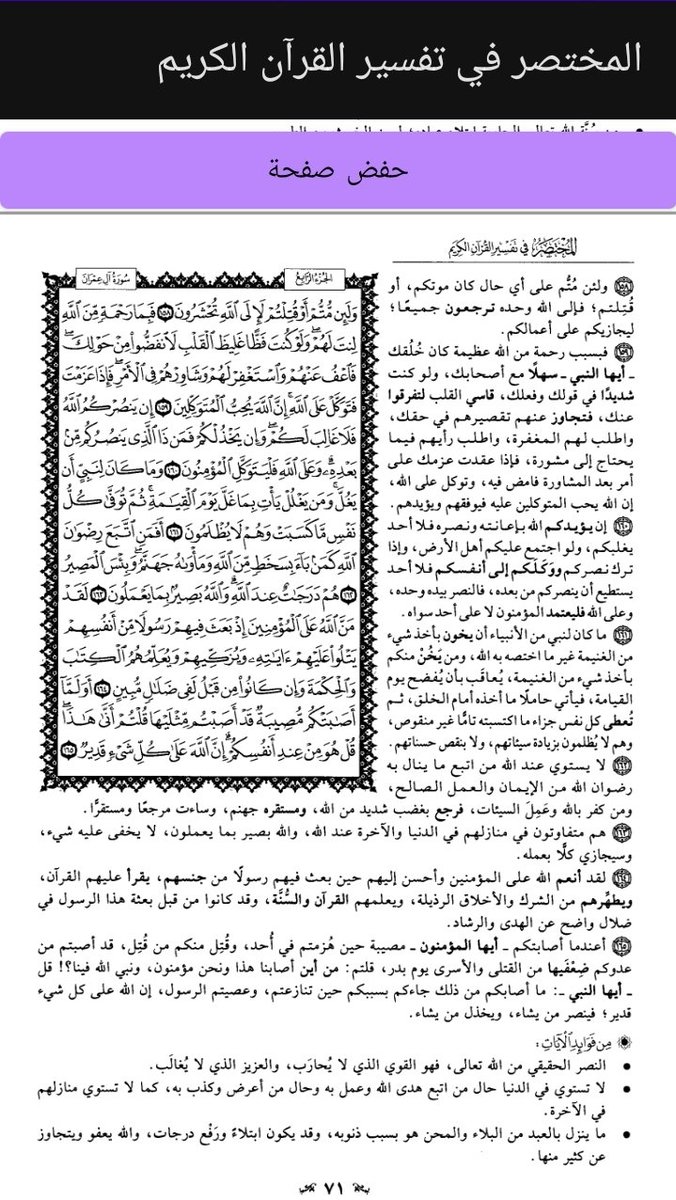 المختصر في تفسير القرآن الكريم
حفض صفحة
المختصر في تفسير القرآن الكريم
الجزء الرابع
سورة آل عمران
وَلَئِن مُّتُّمْ أَوْ قُتِلْتُمْ لَإِلَى ٱللَّهِ تُحْشَرُونَ ١٥٨ فَبِمَا رَحْمَةٍ مِّنَ ٱللَّهِ
لِنتَ لَهُمْ وَلَوْ كُنتَ فَظًّا غَلِيظَ ٱلْقَلْبِ لَٱنفَضُّوا۟ مِنْ حَوْلِكَ
فَٱعْفُ عَنْهُمْ وَٱسْتَغْفِرْ لَهُمْ وَشَاوِرْهُمْ فِى ٱلْأَمْرِ فَإِذَا عَزَمْتَ
فَتَوَكَّلْ عَلَى ٱللَّهِ إِنَّ ٱللَّهَ يُحِبُّ ٱلْمُتَوَكِّلِينَ ١٥٩ إِن يَنصُرْكُمُ ٱللَّهُ
فَلَا غَالِبَ لَكُمْ وَإِن يَخْذُلْكُمْ فَمَن ذَا ٱلَّذِى يَنصُرُكُم مِّنۢ
بَعْدِهِۦ وَعَلَى ٱللَّهِ فَلْيَتَوَكَّلِ ٱلْمُؤْمِنُونَ ١٦٠ وَمَا كَانَ لِنَبِىٍّ أَن
يَغُلَّ وَمَن يَغْلُلْ يَأْتِ بِمَا غَلَّ يَوْمَ ٱلْقِيَٰمَةِ ثُمَّ تُوَفَّىٰ كُلُّ
نَفْسٍ مَّا كَسَبَتْ وَهُمْ لَا يُظْلَمُونَ ١٦١ أَفَمَنِ ٱتَّبَعَ رِضْوَٰنَ
ٱللَّهِ كَمَنۢ بَآءَ بِسَخَطٍ مِّنَ ٱللَّهِ وَمَأْوَىٰهُ جَهَنَّمُ وَبِئْسَ ٱلْمَصِيرُ
١٦٢ هُمْ دَرَجَٰتٌ عِندَ ٱللَّهِ وَٱللَّهُ بَصِيرٌۢ بِمَا يَعْمَلُونَ ١٦٣ لَقَدْ
مَنَّ ٱللَّهُ عَلَى ٱلْمُؤْمِنِينَ إِذْ بَعَثَ فِيهِمْ رَسُولًا مِّنْ أَنفُسِهِمْ
يَتْلُوا۟ عَلَيْهِمْ ءَايَٰتِهِۦ وَيُزَكِّيهِمْ وَيُعَلِّمُهُمُ ٱلْكِتَٰبَ
وَٱلْحِكْمَةَ وَإِن كَانُوا۟ مِن قَبْلُ لَفِى ضَلَٰلٍ مُّبِينٍ ١٦٤ أَوَلَمَّآ
أَصَٰبَتْكُم مُّصِيبَةٌ قَدْ أَصَبْتُم مِّثْلَيْهَا قُلْتُمْ أَنَّىٰ هَٰذَا
قُلْ هُوَ مِنْ عِندِ أَنفُسِكُمْ إِنَّ ٱللَّهَ عَلَىٰ كُلِّ شَىْءٍ قَدِيرٌ ١٦٥
١٥٨ ولئن مُتُّم على أي حال كان موتكم، أو
قُتِلتم؛ فإلى الله وحده ترجعون جميعًا؛
ليجازيكم على أعمالكم.
١٥٩ فبسبب رحمة من الله عظيمة كان خُلُقك
ـ أيها النبي ـ سهلًا مع أصحابك، ولو كنت
شديدًا في قولك وفعلك، قاسي القلب لتفرقوا
عنك، فتجاوز عنهم تقصيرهم في حقك،
واطلب لهم المغفرة، واطلب رأيهم فيما
يحتاج إلى مشورة، فإذا عقدت عزمك على
أمر بعد المشاورة فامض فيه، وتوكل على الله،
إن الله يحب المتوكلين عليه فيوفقهم ويؤيدهم.
١٦٠ إن يؤيدكم الله بإعانته ونصره فلا أحد
يغلبكم، ولو اجتمع عليكم أهل الأرض، وإذا
ترك نصركم ووَكَلَكم إلى أنفسكم فلا أحد
يستطيع أن ينصركم من بعده، فالنصر بيده وحده،
وعلى الله فليعتمد المؤمنون لا على أحد سواه.
١٦١ ما كان لنبي من الأنبياء أن يخون بأخذ شيء
من الغنيمة غير ما اختصه به الله، ومن يَخُنْ منكم
بأخذ شيء من الغنيمة، يُعاقَب بأن يُفضح يوم
القيامة، فيأتي حاملًا ما أخذه أمام الخلق، ثم
تُعطى كل نفس جزاء ما اكتسبته تامًّا غير منقوص،
وهم لا يُظلمون بزيادة سيئاتهم، ولا بنقص حسناتهم.
١٦٢ لا يستوي عند الله من اتبع ما ينال به
رضوان الله من الإيمان والعمل الصالح،
ومن كفر بالله وعَمِلَ السيئات، فرجع بغضب شديد من الله، ومستقره جهنم، وساءت مرجعًا ومستقرًّا.
١٦٣ هم متفاوتون في منازلهم في الدنيا والآخرة عند الله، والله بصير بما يعملون، لا يخفى عليه شيء،
وسيجازي كلًّا بعمله.
١٦٤ لقد أنعم الله على المؤمنين وأحسن إليهم حين بعث فيهم رسولًا من جنسهم، يقرأ عليهم القرآن،
ويطهِّرهم من الشرك والأخلاق الرذيلة، ويعلمهم القرآن والسُّنَّة، وقد كانوا من قبل بعثة هذا الرسول في
ضلال واضح عن الهدى والرشاد.
١٦٥ أعندما أصابتكم ـ أيها المؤمنون ـ مصيبة حين هُزمتم في أُحد، وقُتِل منكم من قُتِل، قد أصبتم من
عدوكم ضِعْفَيها من القتلى والأسرى يوم بدر، قلتم: من أين أصابنا هذا ونحن مؤمنون، ونبي الله فينا؟! قل
ـ أيها النبي ـ: ما أصابكم من ذلك جاءكم بسببكم حين تنازعتم، وعصيتم الرسول، إن الله على كل شيء
قدير؛ فينصر من يشاء، ويخذل من يشاء.
من فوائد الآيات:
• النصر الحقيقي من الله تعالى، فهو القوي الذي لا يُحارَب، والعزيز الذي لا يُغالَب.
• لا تستوي في الدنيا حال من اتبع هدى الله وعمل به وحال من أعرض وكذب به، كما لا تستوي منازلهم
في الآخرة.
• ما ينزل بالعبد من البلاء والمحن هو بسبب ذنوبه، وقد يكون ابتلاءً ورَفْع درجات، والله يعفو ويتجاوز
عن كثير منها.
٧١